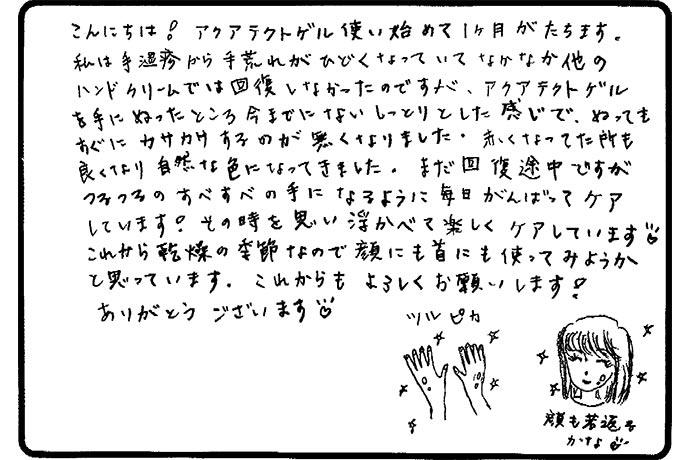 こんにちは! アクアテクトゲル使い始めて1ヶ月がたちます。
私は手湿疹から手荒れがひどくなっていてなかなか他の
ハンドクリームでは回復しなかったのですが、アクアテクトゲル
を手にぬったところ今までにないしっとりとした感じで、ぬっても
すぐにカサカサするのが無くなりました。赤くなってた所も
良くなり自然な色になってきました。まだ回復途中ですが
つるつるのすべすべの手になるように毎日がんばってケア
しています! その時を思い浮かべて楽しくケアしています
これから乾燥の季節なので顔にも首にも使ってみようか
と思っています。これからもよろしくお願いします!
ありがとうございます
ツルピカ
顔も若返る
かな